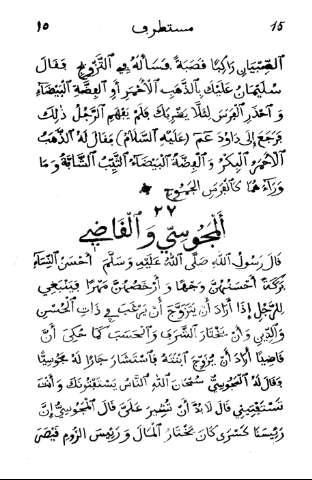 15 مستطرف ١٥
الصِّبْيَانِ رَاكِبًا قَصَبَةً فَسَأَلَهُ فِي التَّزَوُّجِ فَقَالَ
سُلَيْمَانُ عَلَيْكَ بِالذَّهَبِ الْأَحْمَرِ أَوِ الْفِضَّةِ الْبَيْضَاءِ
وَاحْذَرِ الْفَرَسَ لِئَلَّا يَضْرِبَكَ فَلَمْ يَفْهَمِ الرَّجُلُ ذٰلِكَ
فَرَجَعَ إِلَى دَاوُدَ عم (عَلَيْهِ السَّلَامُ) فَقَالَ لَهُ الذَّهَبُ
الْأَحْمَرُ الْبِكْرُ وَالْفِضَّةُ الْبَيْضَاءُ الثَّيِّبُ الشَّابَّةُ وَمَا
وَرَاءَهُمَا كَالْفَرَسِ الْجَمُوحِ
٢٧
أَلْمَجُوسِيُّ وَالْقَاضِي
قَالَ رَسُولُ اللهِ صَلَّى اللهُ عَلَيْهِ وَسَلَّمَ أَحْسَنُ النِّسَاءِ
بَرَكَةً أَحْسَنُهُنَّ وَجْهًا وَأَرْخَصُهُنَّ مَهْرًا فَيَنْبَغِي
لِلرَّجُلِ إِذَا أَرَادَ أَنْ يَتَزَوَّجَ أَنْ يَرْغَبَ فِي ذَاتِ الْحُسْنِ
وَالدِّينِ وَأَنْ يَخْتَارَ الشَّرَفَ وَالْحَسَبَ كَمَا حُكِيَ أَنَّ
قَاضِيًا أَرَادَ أَنْ يُزَوِّجَ ابْنَتَهُ فَاسْتَشَارَ جَارًا لَهُ مَجُوسِيًّا
فَقَالَ لَهُ الْمَجُوسِيُّ سُبْحَانَ اللهِ النَّاسُ يَسْتَفْتُونَكَ وَأَنْتَ
تَسْتَفْتِينِي قَالَ لَا بُدَّ أَنْ تُشِيرَ عَلَيَّ قَالَ الْمَجُوسِيُّ إِنَّ
رَئِيسَنَا كِسْرَى كَانَ يَخْتَارُ الْمَالَ وَرَئِيسَ الرُّومِ قَيْصَرَ